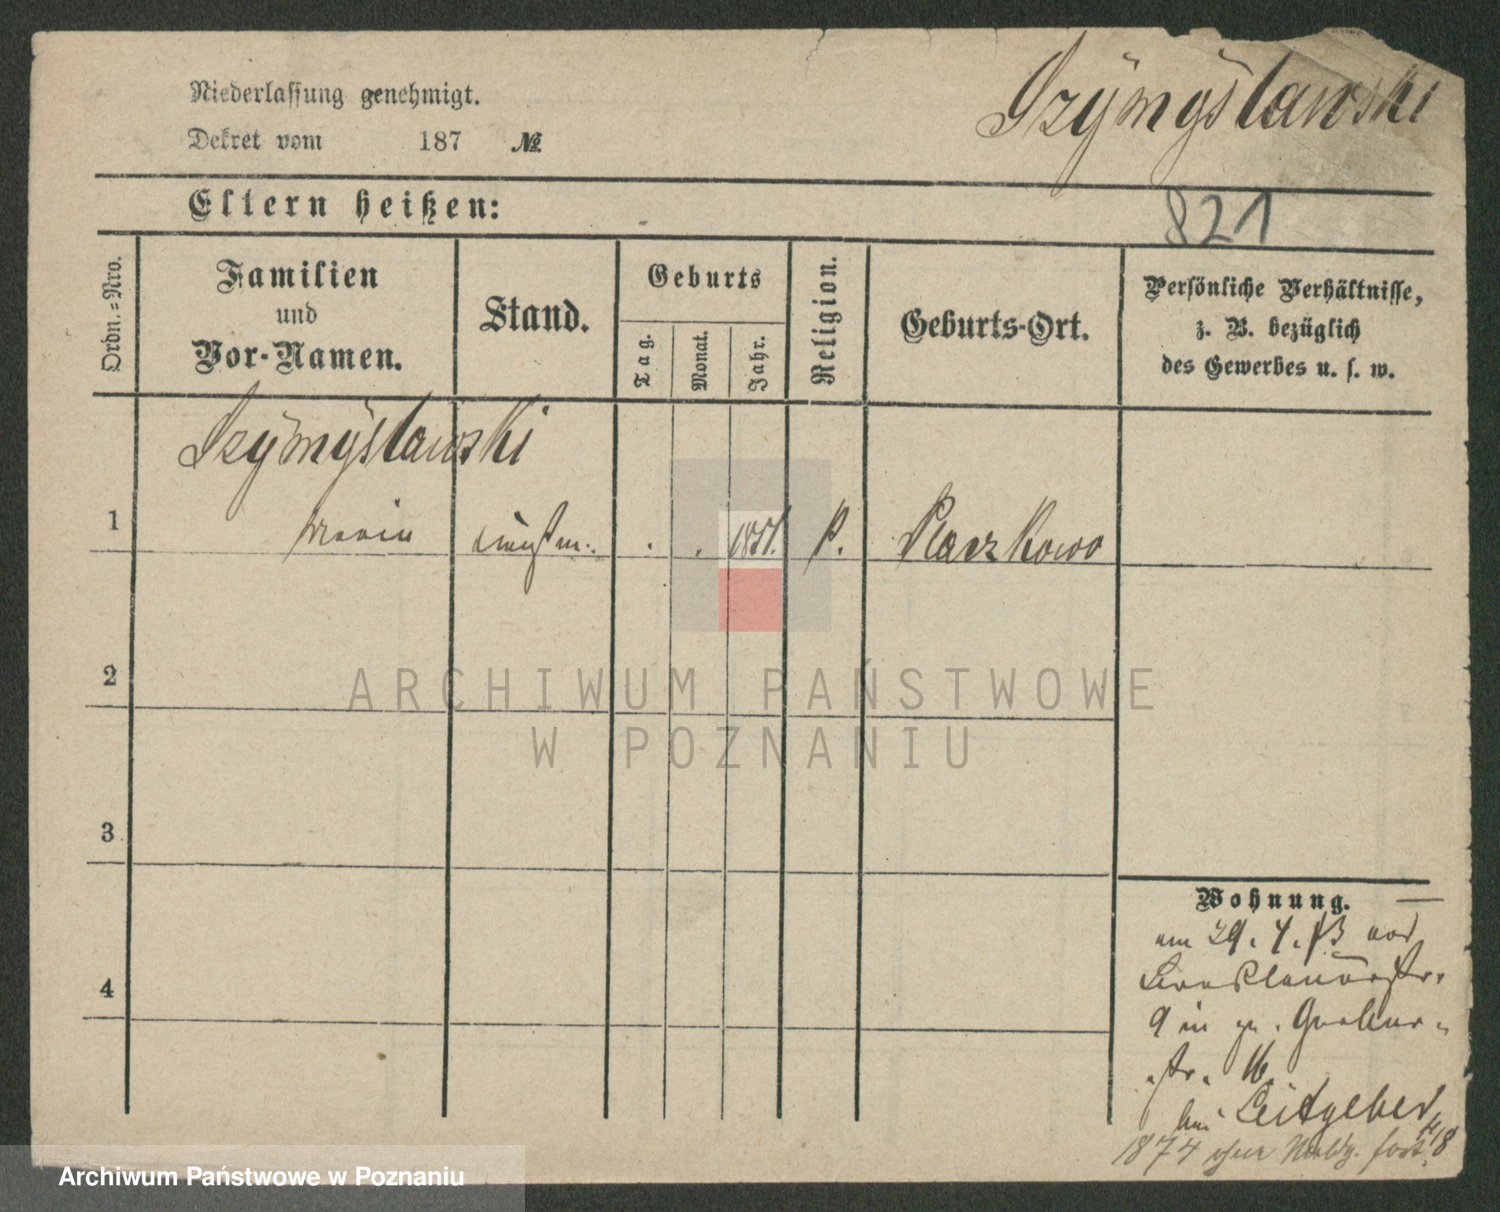 Niederlassung genehmigt.
Dekret vom 187 №
Szymysławski
Eltern heißen:
821
Ordn.=Nro.
Familien
und
Vor-Namen.
Stand.
Geburts
Tag.
Monat.
Jahr.
Religion.
Geburts-Ort.
Persönliche Verhältnisse,
z. B. bezüglich
des Gewerbes u. s. w.
Szymysławski
1 Maria . . 1851. k. Placzkowo
2
3
4
Wohnung.
am 29. 4. 73 von
9 in Graben-
str. 16
bei Leitgeber
1874 fort
ARCHIWUM PAŃSTWOWE
W POZNANIU
Archiwum Państwowe w Poznaniu